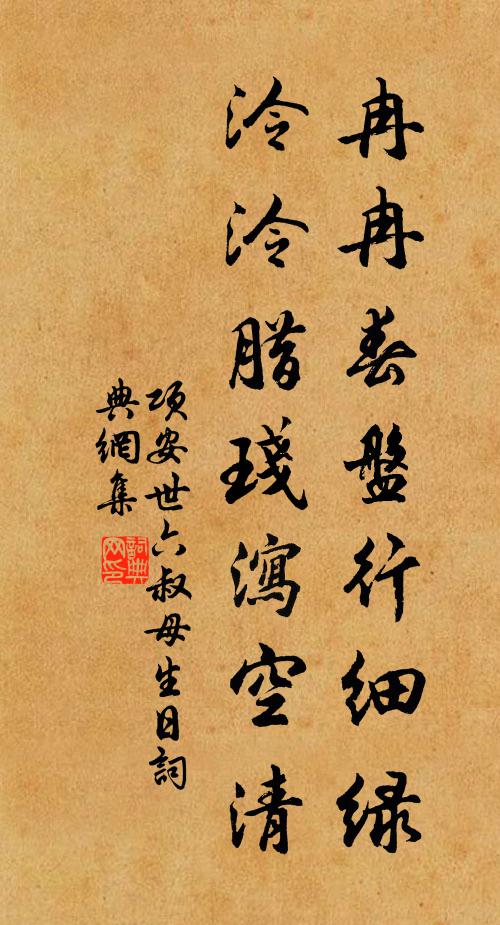 冉冉春盤行細綠
泠泠腊琖瀉空清
項安世六叔母生日詞
典網集
詞典網印